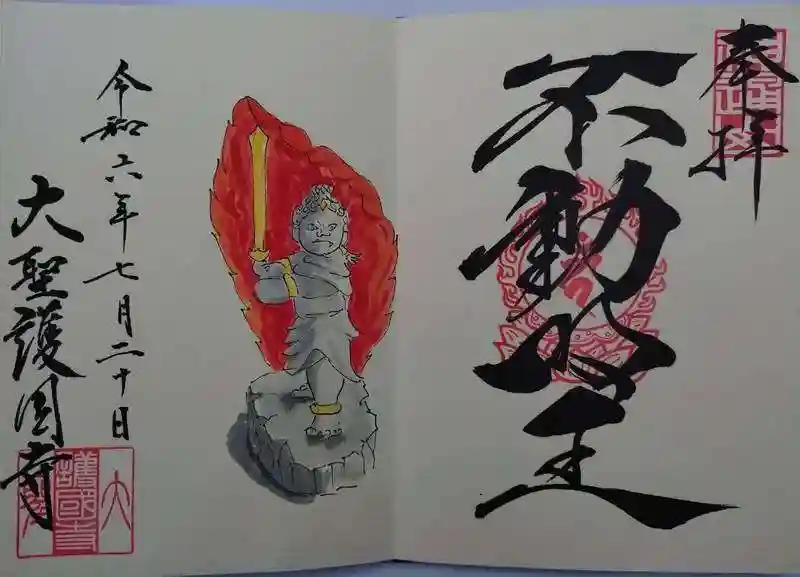 奉拝
不動明王
令和六年七月二十日
大聖護国寺
護國寺